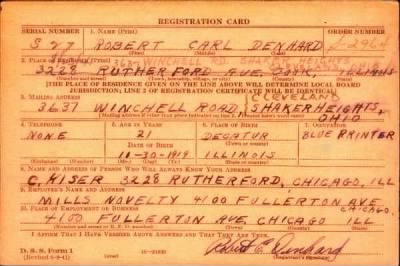 REGISTRATION CARD
SERIAL NUMBER 1. NAME (Print) ORDER NUMBER
S 27 ROBERT CARL DENHARD
2. PLACE OF RESIDENCE (Print)
3228 RUTHERFORD AVE. COOK ILLINOIS
[THE PLACE OF RESIDENCE GIVEN ON THE LINE ABOVE WILL DETERMINE LOCAL BOARD
JURISDICTION; LINE 2 OF REGISTRATION CERTIFICATE WILL BE IDENTICAL]
3. MAILING ADDRESS CLEVELAND
3637 WINCHELL ROAD, SHAKER HEIGHTS, OHIO
4. TELEPHONE 5. AGE IN YEARS 6. PLACE OF BIRTH 7. OCCUPATION
NONE 21 DECATUR BLUE PRINTER
DATE OF BIRTH
11-30-1919 ILLINOIS
8. NAME AND ADDRESS OF PERSON WHO WILL ALWAYS KNOW YOUR ADDRESS
C. HISER 3228 RUTHERFORD, CHICAGO, ILL
9. EMPLOYER'S NAME AND ADDRESS
MILLS NOVELTY 4100 FULLERTON AVE. CHICAGO,
10. PLACE OF EMPLOYMENT OR BUSINESS
4100 FULLERTON AVE. CHICAGO ILL
I AFFIRM THAT I HAVE VERIFIED ABOVE ANSWERS AND THAT THEY ARE TRUE.
D. S. S. Form 1
(Revised 6-9-41)